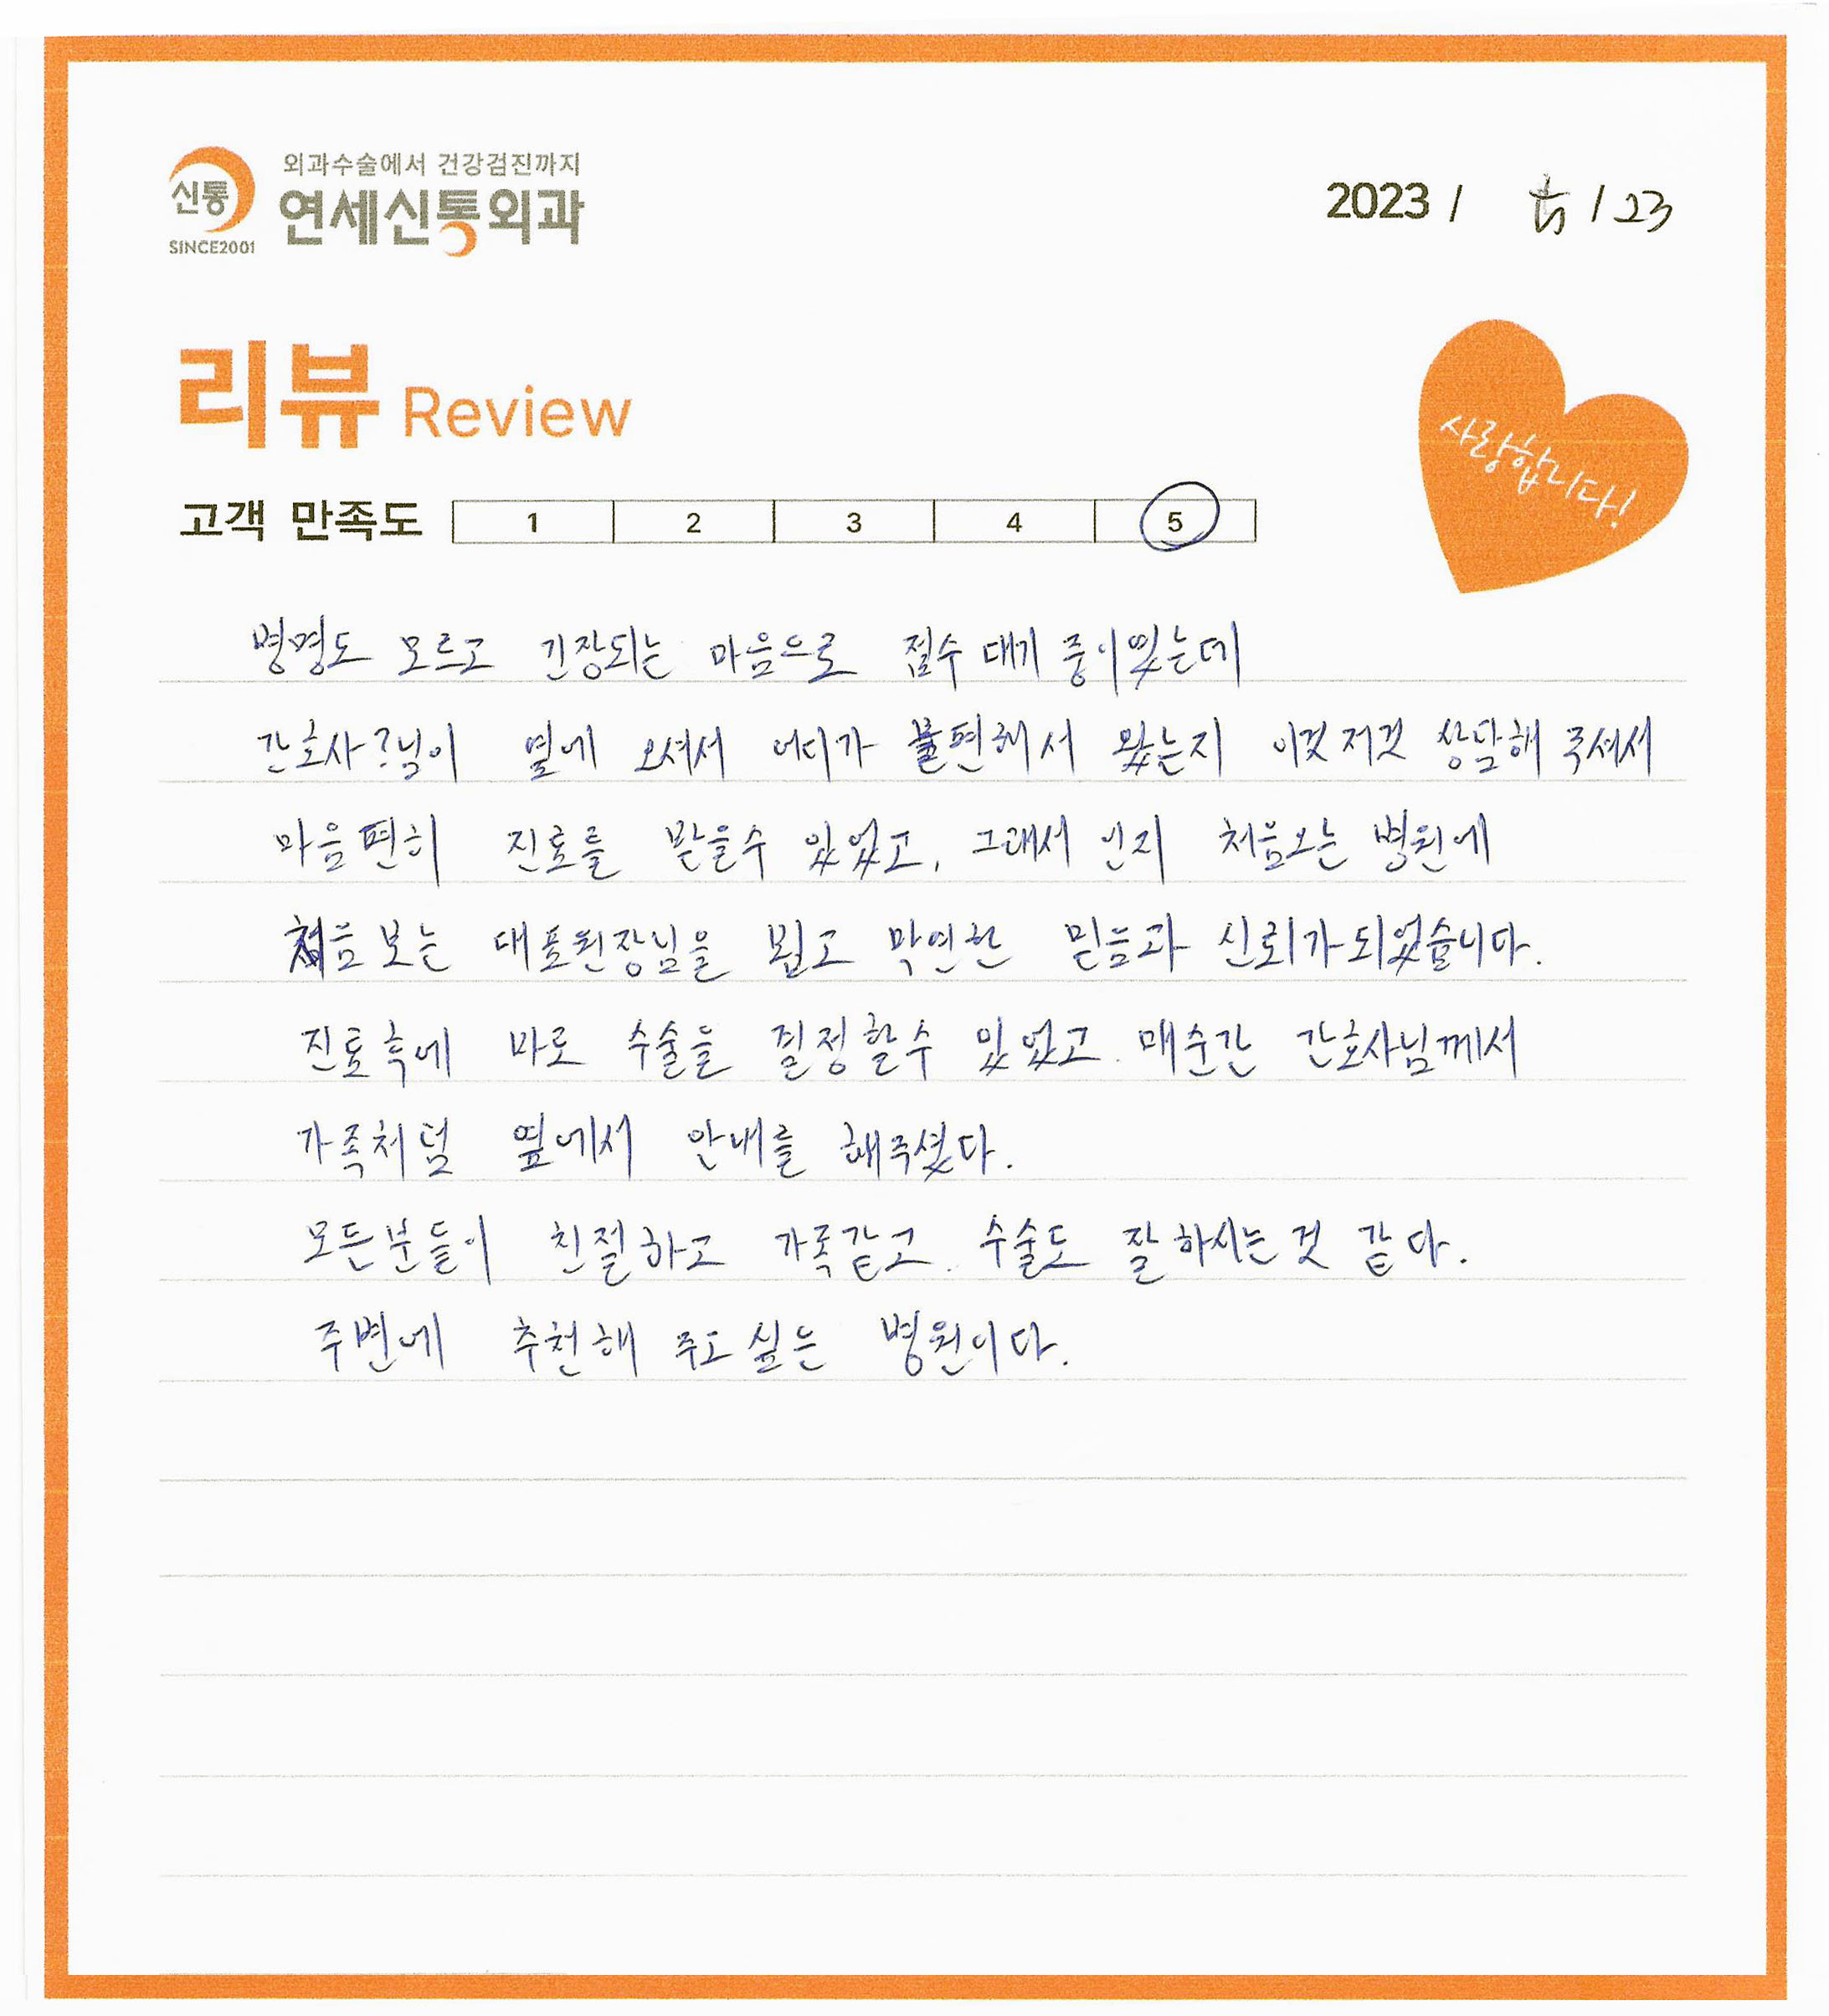 외과수술에서 건강검진까지
신통 연세신통외과
SINCE2001
2023 / / 23
리뷰 Review
사랑합니다!
고객 만족도 1 2 3 4 5
병명도 모르고 긴장되는 마음으로 접수 대기 중이였는데
간호사?님이 옆에 오셔서 어디가 불편해서 왔는지 이것저것 상담해 주셔서
마음편히 진료를 받을수 있었고, 그래서 인지 처음오는 병원에
처음 보는 대표원장님을 뵙고 막연한 믿음과 신뢰가되었습니다.
진료후에 바로 수술을 결정할수 있었고. 매순간 간호사님께서
가족처럼 옆에서 안내를 해주셨다.
모든분들이 친절하고 가족같고. 수술도 잘하시는것 같다.
주변에 추천해 주고싶은 병원이다.